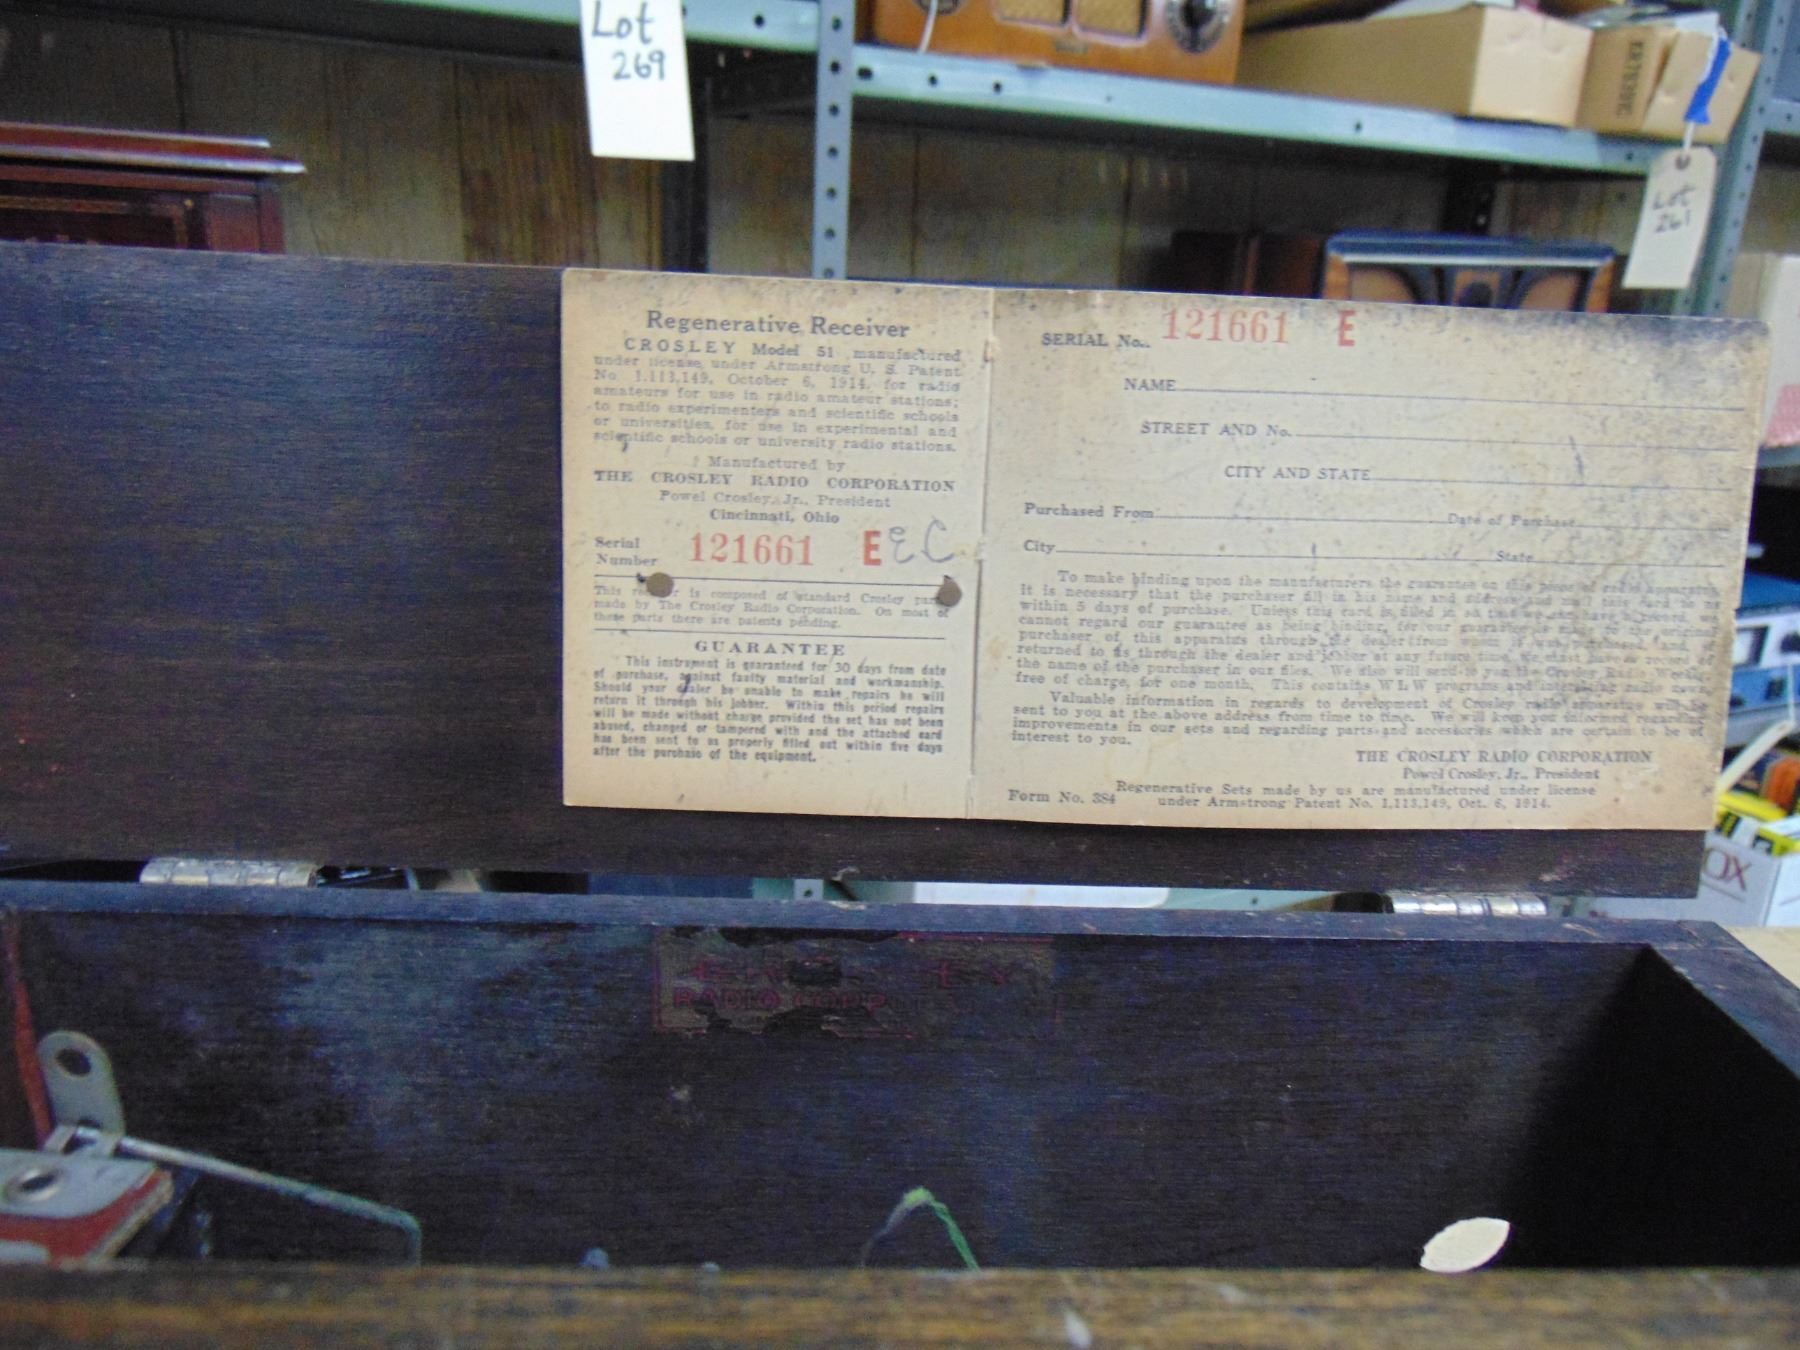 Lot
269
Lot
261
Regenerative Receiver
CROSLEY Model 51 manufactured
under license under Armstrong U. S. Patent
No. 1,113,149, October 6, 1914, for radio
amateurs for use in radio amateur stations;
to radio experimenters and scientific schools
or universities, for use in experimental and
scientific schools or university radio stations.
Manufactured by
THE CROSLEY RADIO CORPORATION
Powel Crosley, Jr., President
Cincinnati, Ohio
Serial
Number 121661 E E C
This is composed of standard Crosley
made by The Crosley Radio Corporation. On most of
these parts there are patents pending.
GUARANTEE
This instrument is guaranteed for 30 days from date
of purchase, against faulty material and workmanship.
Should your dealer be unable to make repairs he will
return it through his jobber. Within this period repairs
will be made without charge provided the set has not been
abused, changed or tampered with and the attached card
has been sent to us properly filled out within five days
after the purchase of the equipment.
SERIAL No. 121661 E
NAME
STREET AND No.
CITY AND STATE
Purchased From Date of Purchase
City State
To make binding upon the manufacturers the guarantee on this piece of radio apparatus
it is necessary that the purchaser fill in his name and address and mail this card to us
within 5 days of purchase. Unless this card is filled in so that we can have a record, we
cannot regard our guarantee as being binding, for our guarantee is made to the original
purchaser of this apparatus through the dealer from whom it was purchased, and, if
returned to us through the dealer and jobber at any future time, we must have a record of
the name of the purchaser in our files. We also will send to you the Crosley Radio Weekly
free of charge, for one month. This contains WLW programs and interesting radio news.
Valuable information in regards to development of Crosley radio apparatus will be
sent to you at the above address from time to time. We will keep you informed regarding
improvements in our sets and regarding parts and accessories which are certain to be of
interest to you.
THE CROSLEY RADIO CORPORATION
Powel Crosley, Jr., President
Form No. 384 Regenerative Sets made by us are manufactured under license
under Armstrong Patent No. 1,113,149, Oct. 6, 1914.
RADIO CORP